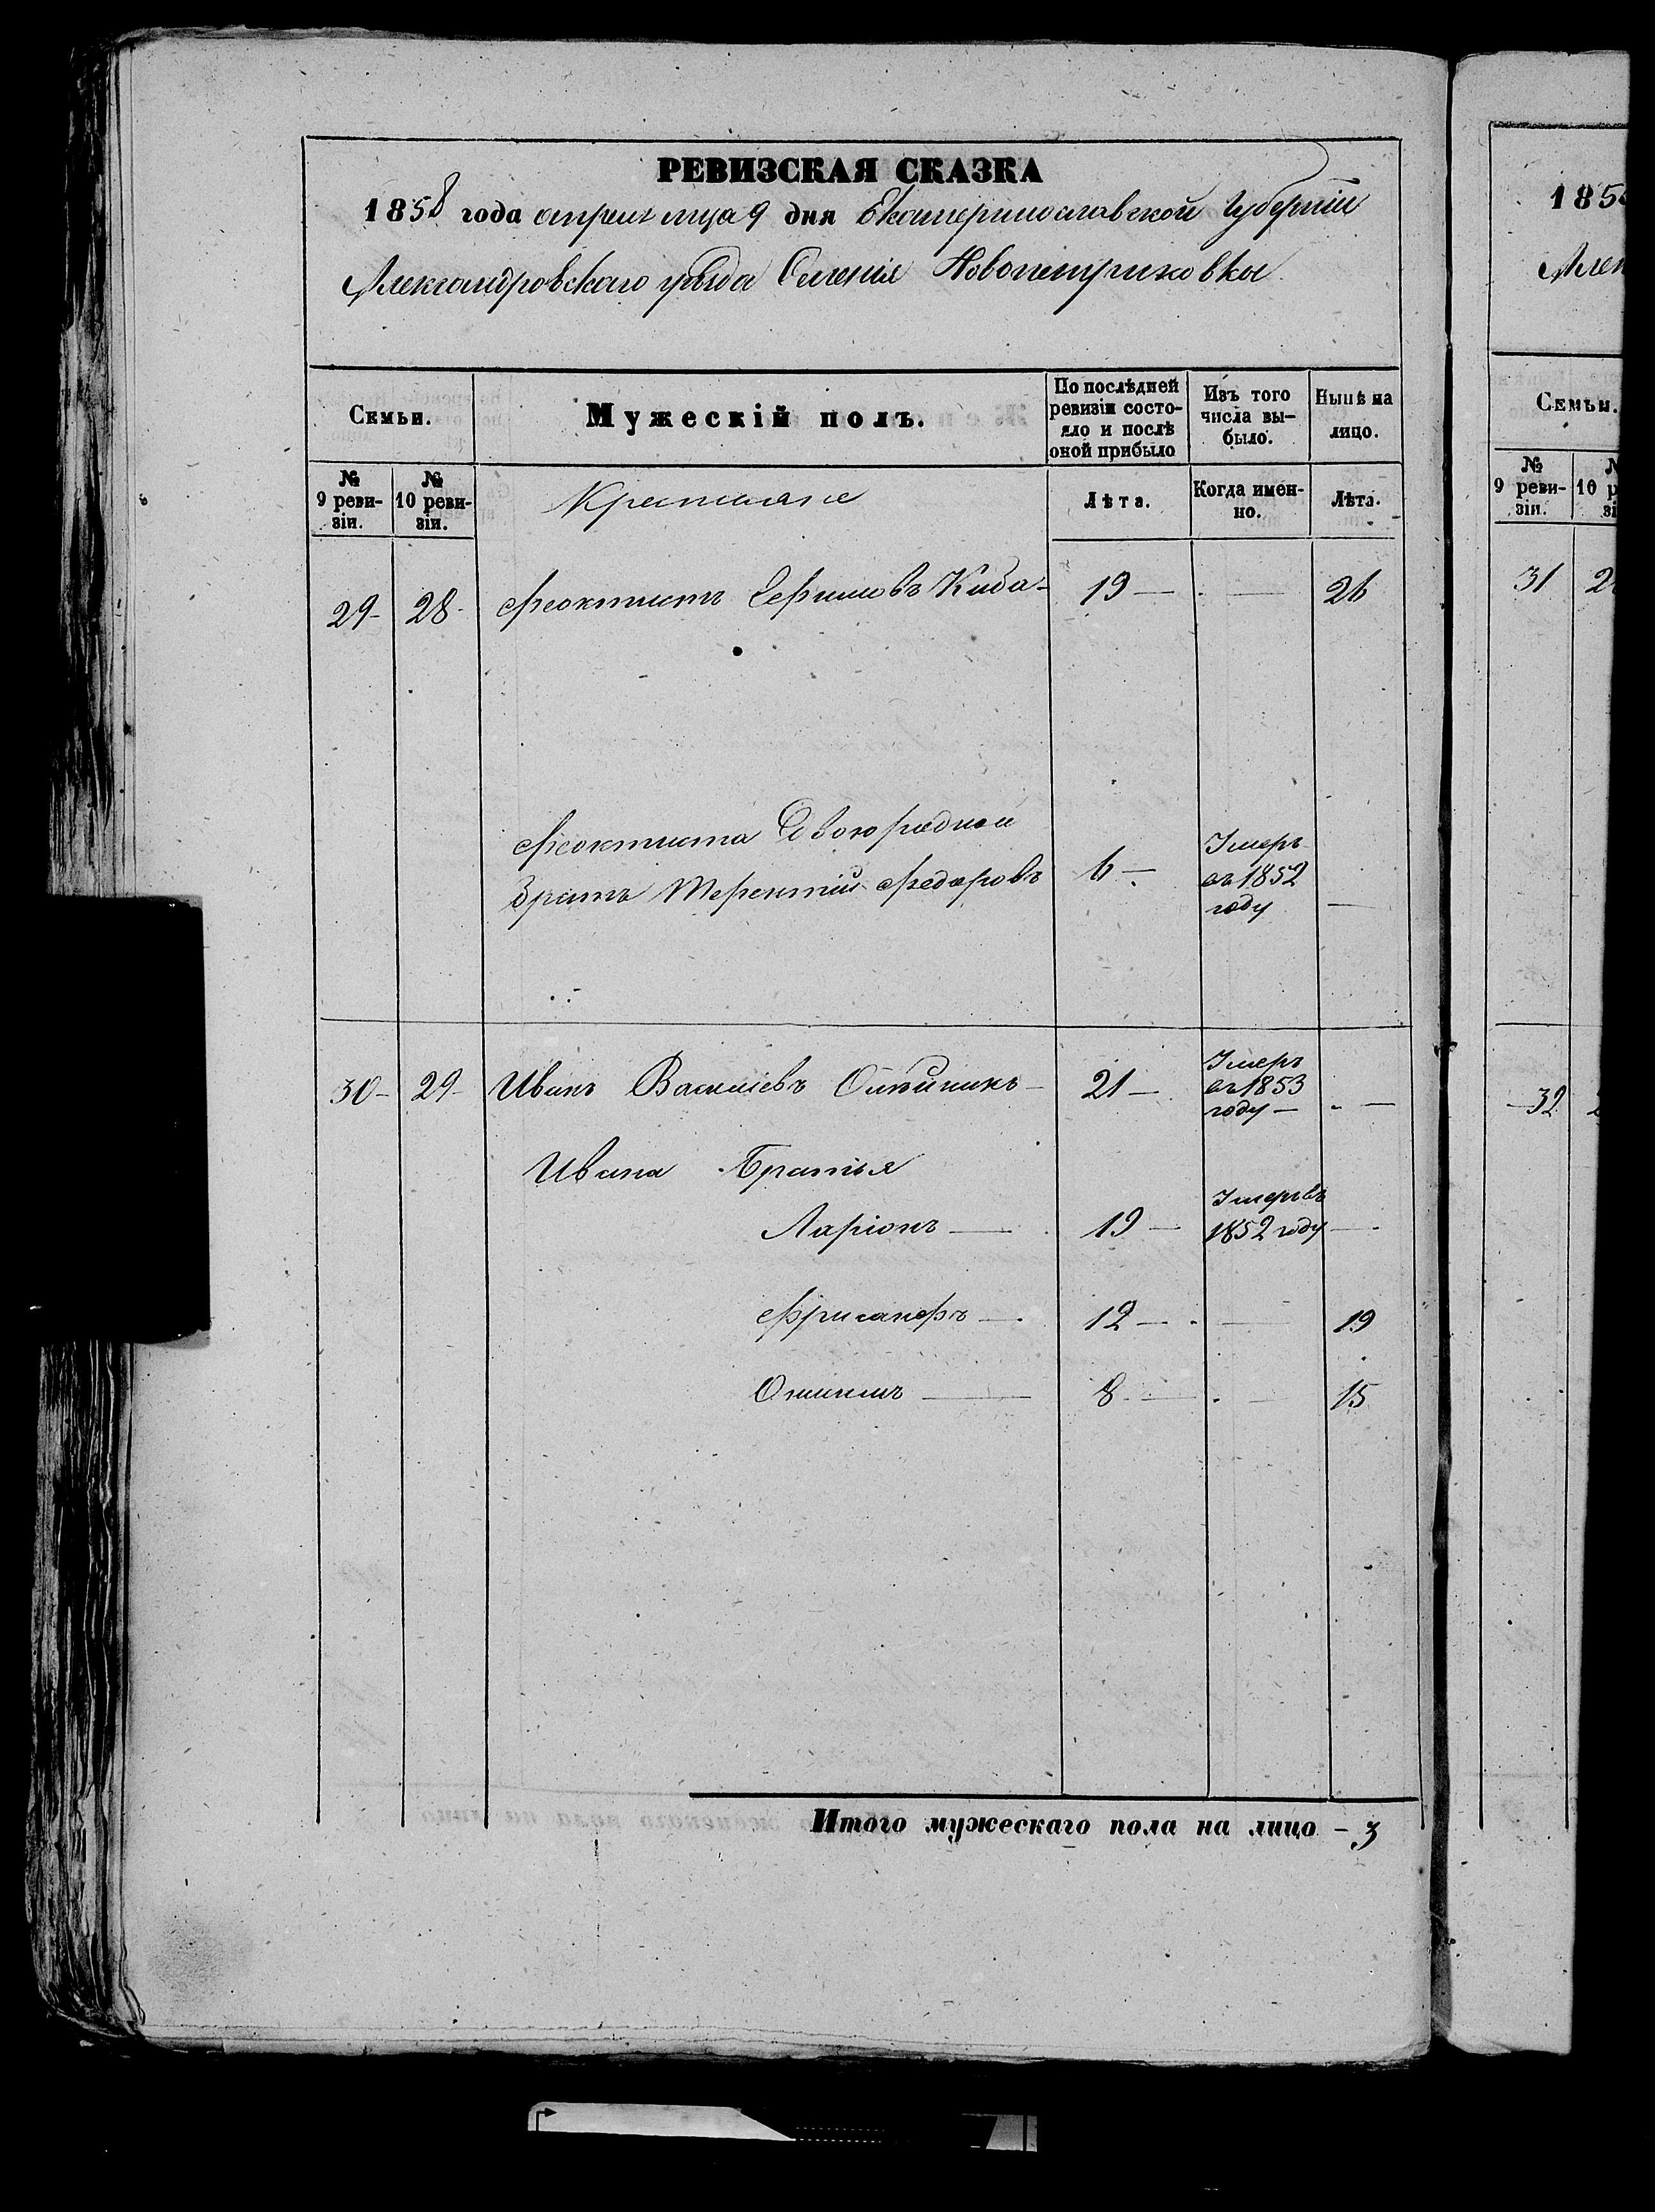 РЕВИЗСКАЯ СКАЗКА
1858 года апреля мца 9 дня Екатеринославской Губернии
Александровскаго уѣзда Селенія Новопетриковки
Семьи.
Мужескій полъ.
По послѣдней ревизіи состояло и послѣ оной прибыло
Изъ того числа выбыло.
Нынѣ на лицо.
№ 9 ревизіи.
№ 10 ревизіи.
Крестьяне
Лѣта.
Когда именно.
Лѣта.
29 - 28 - Феоктистъ Ефимовъ Киба - 19 — — 26
Феоктиста Двоюродной
Братъ Терентій Федоровъ 6 — Умеръ въ 1852 году —
30 - 29 - Иванъ Василіевъ - 21 — Умеръ въ 1853 году — —
Ивана Братья
Ларіонъ — 19 — Умеръ въ 1852 году —
12 — — 19
8 — — 15
Итого мужескаго пола на лицо - 3
185
Алек
Семьи.
№ 9 ревизіи.
31
32